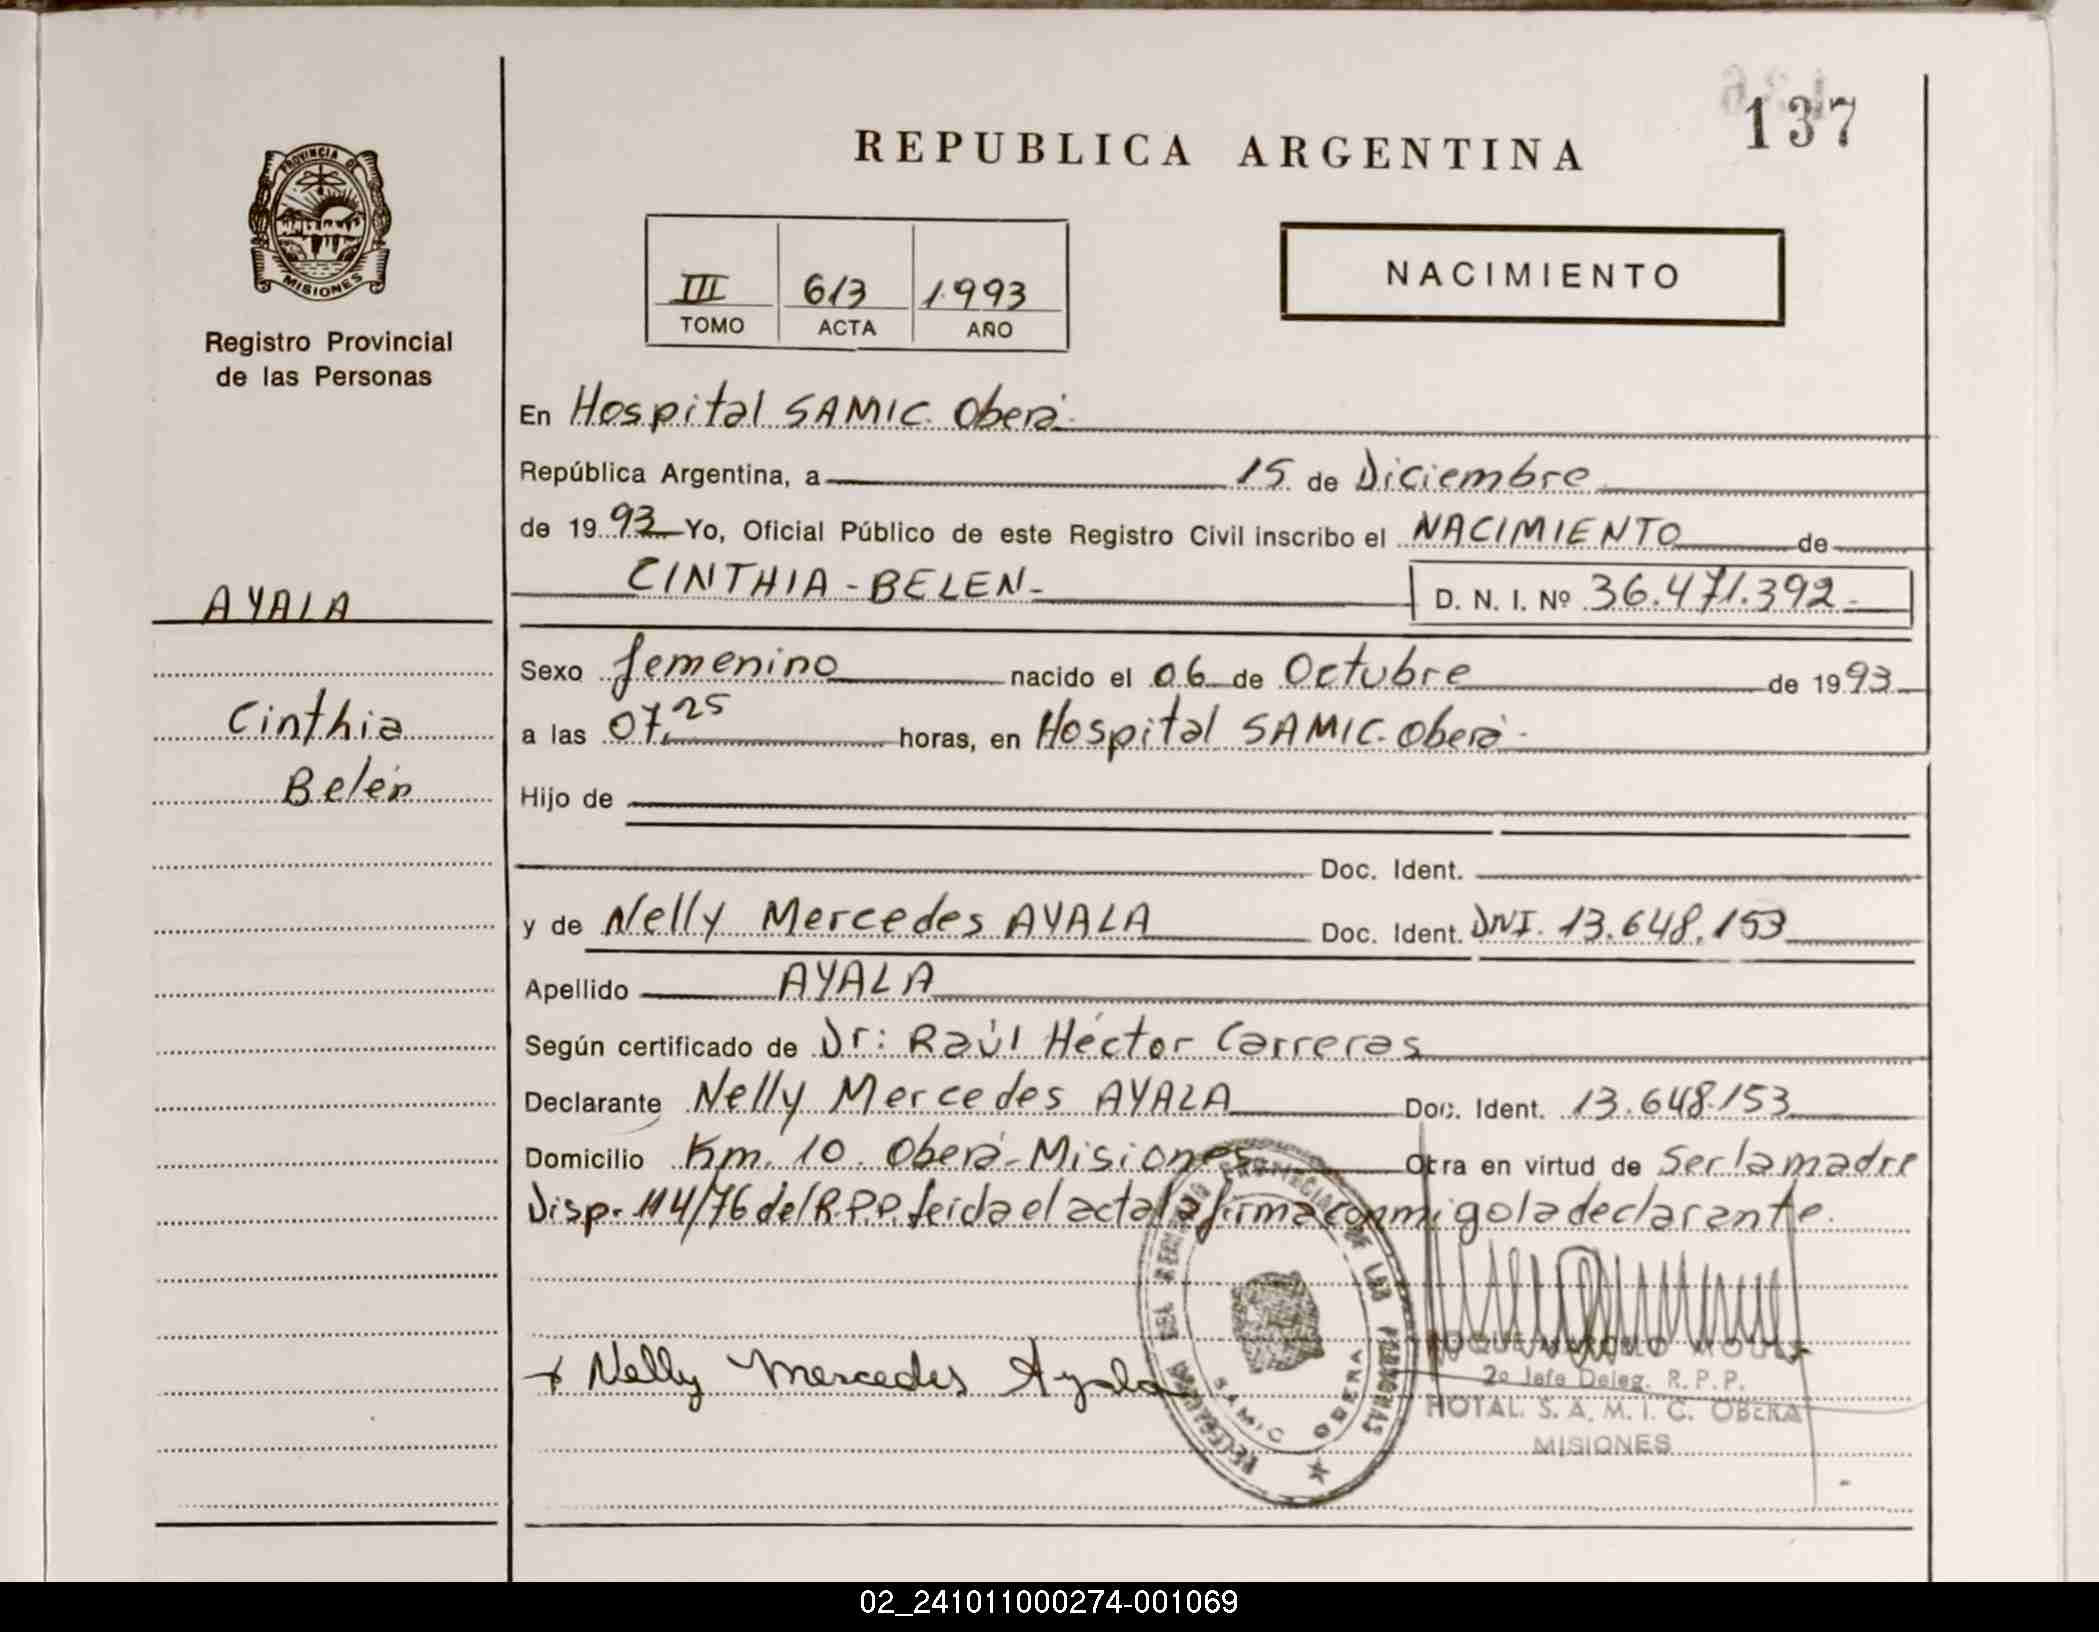 137
REPUBLICA ARGENTINA
PROVINCIA DE
MISIONES
Registro Provincial
de las Personas
III 613 1.993
TOMO ACTA AÑO
NACIMIENTO
En Hospital SAMIC. Oberá.
República Argentina, a 15 de Diciembre
de 19 93 Yo, Oficial Público de este Registro Civil inscribo el NACIMIENTO de
AYALA
CINTHIA - BELEN - D. N. I. Nº 36.471.392.-
Sexo femenino nacido el 06 de Octubre de 19 93
Cinthia
a las 07,25 horas, en Hospital SAMIC. Oberá.
Belén
Hijo de
Doc. Ident.
y de Nelly Mercedes AYALA Doc. Ident. DNI. 13.648.153
Apellido AYALA
Según certificado de Dr: Raúl Héctor Carreras
Declarante Nelly Mercedes AYALA Doc. Ident. 13.648.153
Domicilio Km. 10. Oberá - Misiones Obra en virtud de Ser la madre
Disp. 114/76 del R.P.P. leida el acta la firma conmigo la declarante.
DELEGACION DEL REGISTRO PROVINCIAL DE LAS PERSONAS
SAMIC OBERA
Nelly Mercedes Ayala
ROQUE MARCELO
2º Jefe Deleg. R. P. P.
HOTAL. S. A. M. I. C. OBERA
MISIONES
02_241011000274-001069